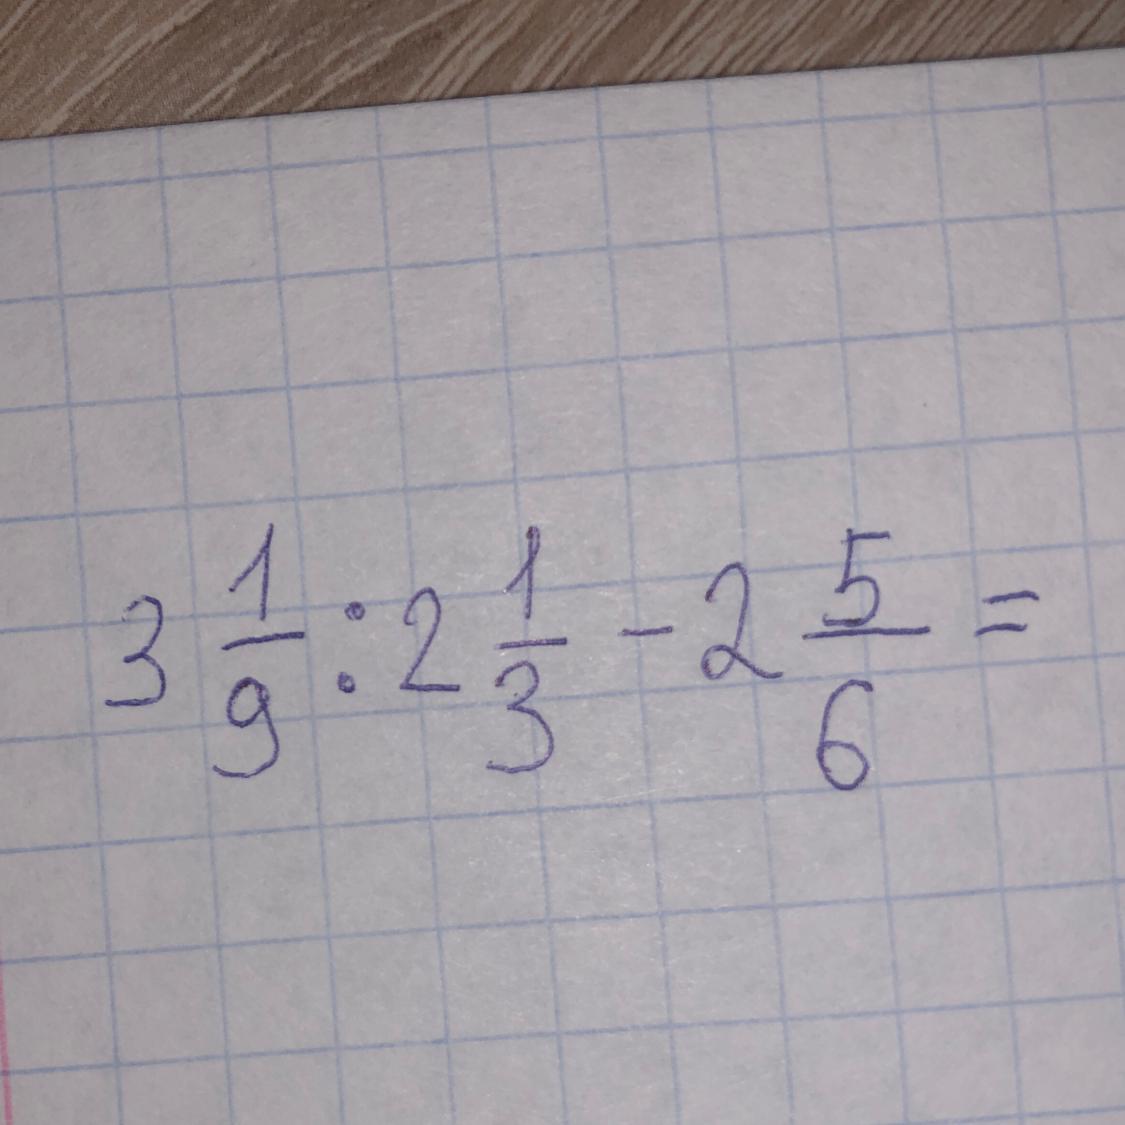 3 1/9 : 2 1/3 - 2 5/6 =